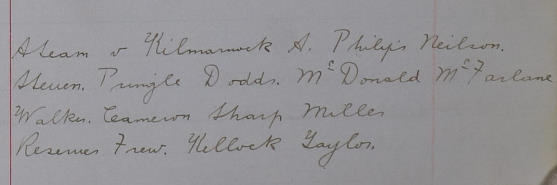 A team v Kilmarnock A. Philips Neilson.
Steven. Pringle Dodds. McDonald McFarlane
Walker. Cameron Sharp Miller
Reserves Frew. Kellock Taylor.